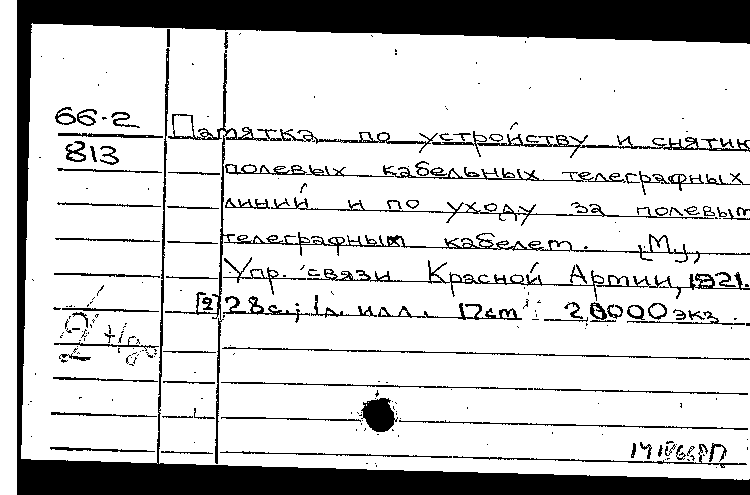 66-2
813
Памятка по устройству и снятию
полевых кабельных телеграфных
линий и по уходу за полевым
телеграфным кабелет. [М],
Упр. связи Красной Артии, 1921.
[2] 28 с.; 1 л. илл. 17 cm 20000 экз.